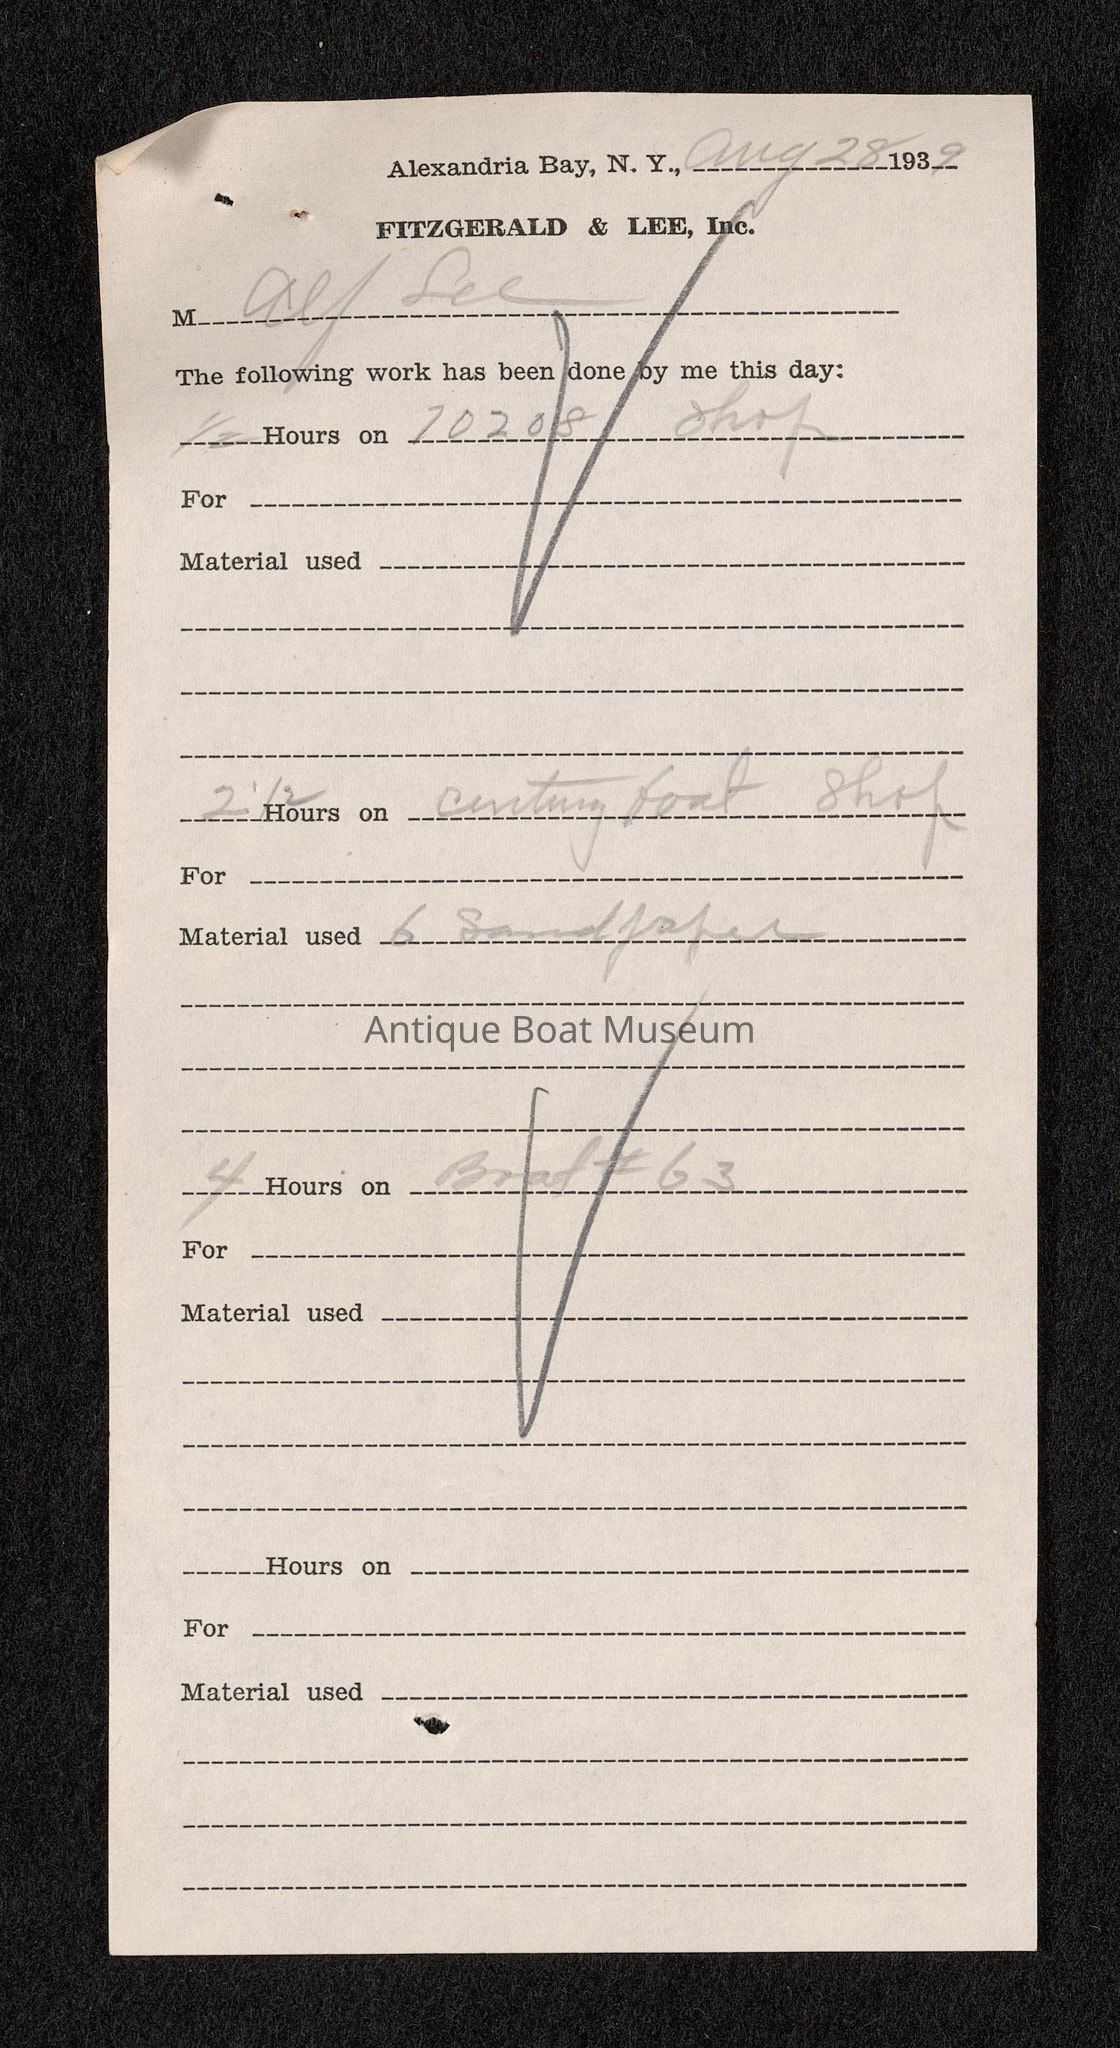 Alexandria Bay, N. Y., Aug 28 1939
FITZGERALD & LEE, Inc.
M Alf Lee
The following work has been done by me this day:
1/2 Hours on 10208 Shop
For
Material used
2 1/2 Hours on century boat Shop
For
Material used 6 Sandpaper
Antique Boat Museum
4 Hours on Boat # 63
For
Material used
Hours on
For
Material used